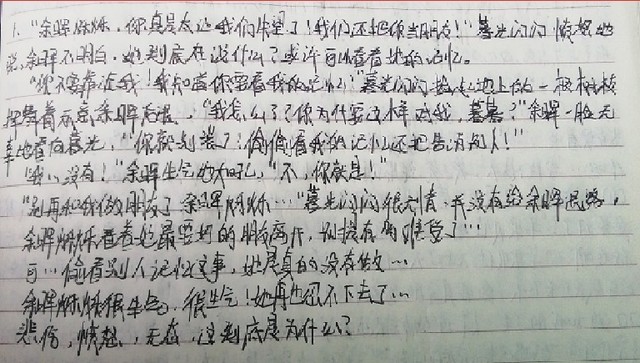 1. "余晖烁烁，你真是太让我们失望了！我们还把你当朋友！"暮光闪闪愤怒地
说，余晖不明白，她到底在说什么？或许可以看看她的记忆。
"你不要靠近我！我知道你要看我的记忆！"暮光闪闪捡起地上的一根树枝
挥舞着示意余晖后退，"我怎么了？你为什么要这样对我，暮暮？"余晖一脸无
辜地看向暮光，"你就别装了！偷偷看我的记忆还把告诉别人！"
"我，没有！"余晖生气地大吼，"不，你就是！"
"别再和我们做朋友了余晖烁烁…"暮光闪闪很无情，并没有给余晖退路，
余晖烁烁看着她最要好的朋友离开，别提有多难受了…
可…偷看别人记忆这事，她是真的没有做…
余晖烁烁很生气，很生气！她再也忍不下去了…
悲伤，愤怒，无奈，这到底是为什么？